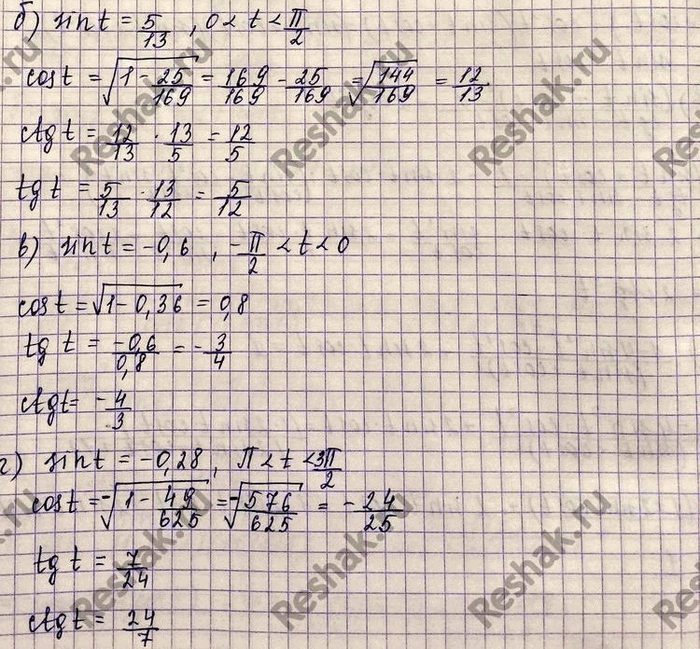 б) sin t = 5/13 , 0 < t < π/2
cos t = √(1 - 25/169) = 169/169 - 25/169 = √(144/169) = 12/13
ctg t = 12/13 · 13/5 = 12/5
tg t = 5/13 · 13/12 = 5/12
в) sin t = -0,6 , -π/2 < t < 0
cos t = √(1 - 0,36) = 0,8
tg t = -0,6/0,8 = -3/4
ctg t = -4/3
г) sin t = -0,28 , π < t < 3π/2
cos t = -√(1 - 49/625) = -√(576/625) = -24/25
tg t = 7/24
ctg t = 24/7
Reshak.ru
Reshak.ru
Reshak.ru
Reshak.ru
Reshak.ru